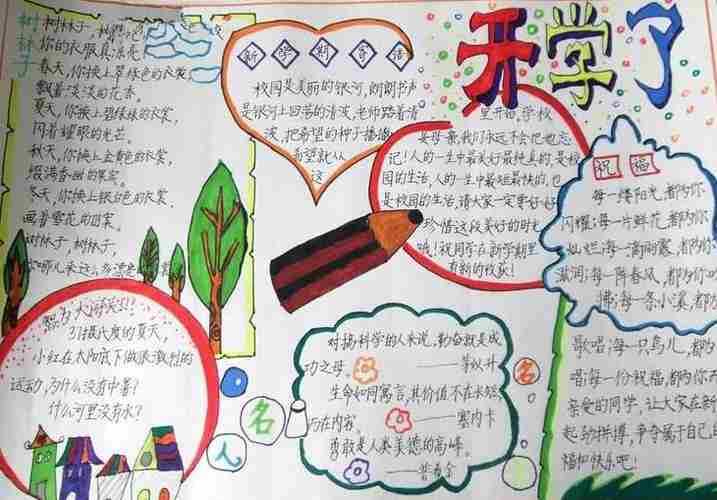 开学了
树林子
树林子,树林子,
你的衣服真漂亮
春天,你换上翠绿色的衣裳,
飘着淡淡的花香。
夏天,你换上碧绿核的衣裳,
闪着耀眼的光芒。
秋天,你换上金黄色的衣裳,
缀满香甜的果实。
冬天,你换上银白色的衣裳,
画着雪花的图案。
树林子,树林子,
新学期寄语
校园是美丽的银河,朗朗书声
是银河上回荡的清波,老师踏着清
波,把希望的种子播撒
希望就从
这
里开始,学校
母亲,我们永远不会把也忘
记!人的一生中最美好最纯真的是校
园的生活,人的一生中最短最快的,也
是校园的生活,请大家一定要好好
珍惜这段美好的时光
哦!祝同学在新学期里
有新的收获!
祝福
每一缕阳光,都为你
闪耀;每一片鲜花,都为你
灿烂;每一滴雨露,都为你
滋润;每一阵春风,都为你
拂;每一条小溪,都为
歌唱;每一只鸟儿,都为
唱;每一份祝福,都为你
亲爱的同学,让大家在新
起劲拼搏,争夺属于自己
福和快乐吧!
31摄氏度的夏天,
小红在太阳底下做很激烈的
运动,为什么没有中暑?
什么河里没有水?
名人
名言
对搞科学的人来说,勤奋就是成
功之母。——茅以升
生命如同寓言,其价值不在长短,
而在内容。——塞内卡
勇敢是人类美德的高峰。
——普希金